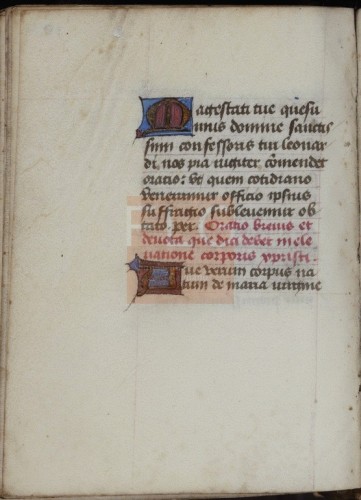 Magestati tue quesu
mus domine sanctis
simi confessoris tui leonar
di nos pia iugiter comendet
oratio: vt quem cotidiano
veneramur officio ipsius
suffragio subleuemur ob
tato per. Oratio breuis et
deuota que dici debet in ele
uatione corporis xpristi.
Aue verum corpus na
tum de maria uirgine